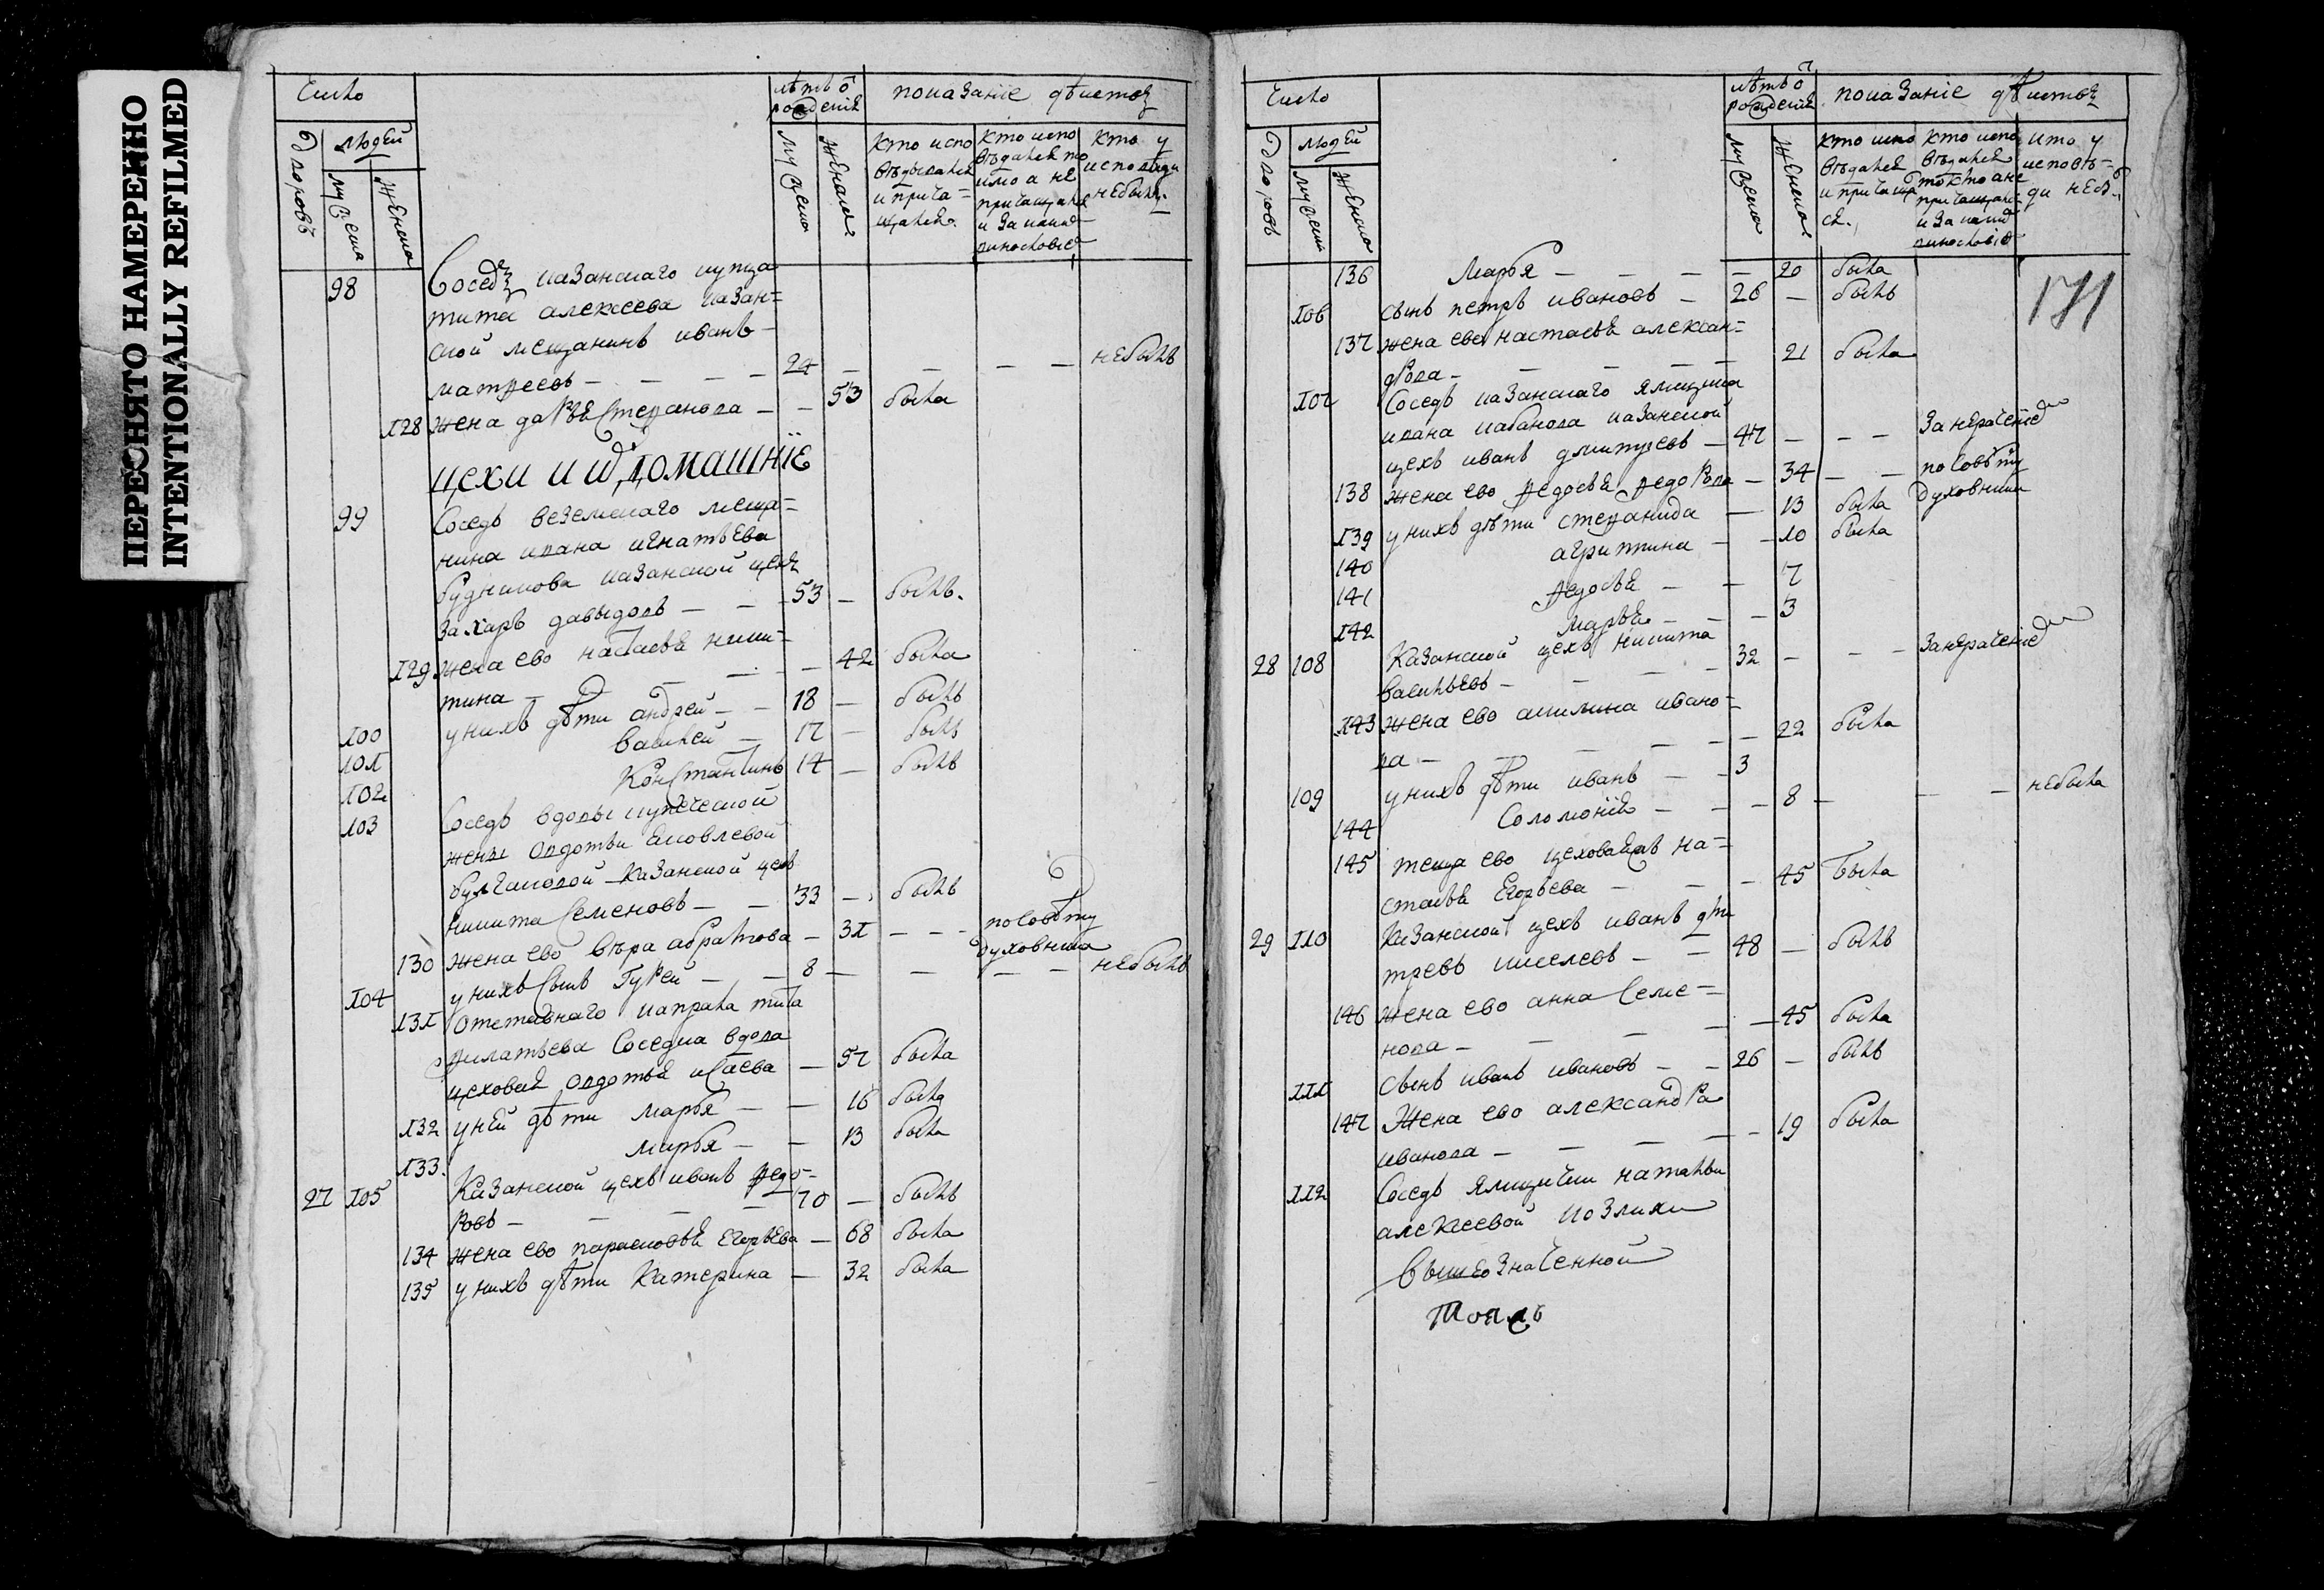 ПЕРЕСНЯТО НАМЕРЕННО
INTENTIONALLY REFILMED
Число
лѣтъ ѿ рожденія
показаніе дѣйства
дворовъ
людей
мужеска
женска
мужеска
женска
кто испо
вѣдывался
и прича=
щался
кто испо
вѣдался то
кмо а не
причащался
и за каким
винословіем
кто у
исповѣди
небылъ
98 Соседъ казанскаго купца
тита алексеева казан=
ской мещанинъ иванъ
матфеевъ — — — 24 — — — — небылъ
128 жена дарья Стефанова — — 53 была
цехи и ихъ домашніе
99 Соседъ веземскаго меща=
нина ивана игнатьева
будникова казанской цехъ
Захаръ давыдовъ — — 53 — былъ
129 жена ево настасья ники=
тина — — — — — 42 была
100 у нихъ дѣти андрей — — 18 — былъ
101 василей — 17 — былъ
102 Константинъ 14 — былъ
103 Соседъ вдовы купеческой
жены авдотьи яковлевой
булгаковой казанской цехъ
никита Семеновъ — — 33 — былъ
130 жена ево вѣра абрамова — 31 — — — по совѣту
духовника
104 у нихъ сынъ Гурей — — 8 — — — — небылъ
131 Отставнаго капрала тита
филатьева Соседка вдова
цеховая авдотья исаева — 57 была
132 у ней дѣти марья — — 16 была
133 марья — — 13 была
27 105 Казанской цехъ иванъ федо=
ровъ — — — — 70 — былъ
134 жена ево парасковья Егорьева — 68 была
135 у нихъ дѣти Катерина — 32 была
Число
лѣтъ ѿ
рожденія
показаніе дѣйства
дворовъ
людей
мужеска
женска
мужеска
женска
кто испо
вѣдался
и причаща
ся
кто испо
вѣдался
токмо а не
причащался
и за каким
винословіем
кто у
исповѣ=
ди небы
171
136 Марья — — — — 20 была
106 сынъ петръ ивановъ — 26 — былъ
137 жена ево настасья алексан=
дрова — — — — 21 была
107 Соседъ казанскаго ямщика
ивана кабанова казанской
цехъ иванъ дмитреевъ — 47 — — — За нераченіем
138 жена ево федосья федорова — 34 — — по совѣту
духовника
139 у нихъ дѣти стефанида — 13 была
140 агрипина — — 10 была
141 федосья — — 7
142 марья — — — 3
28 108 Казанской цехъ никита
васильевъ — — — — 32 — — — За нераченіем
143 жена ево акилина ивано=
ва — — — — — 22 была
109 у нихъ дѣти иванъ — — 3
144 Соломонія — — — 8 — — — небыла
145 теща ево цеховая на=
стасья Егорьева — — — 45 была
29 110 Казанской цехъ иванъ дми
тревъ киселевъ — — 48 — былъ
146 жена ево анна Семе=
нова — — — — 45 была
111 сынъ иванъ ивановъ — — 26 — былъ
147 Жена ево александра
иванова — — — — 19 была
112 Соседъ ямщички натальи
алексеевой
вышеозначенной